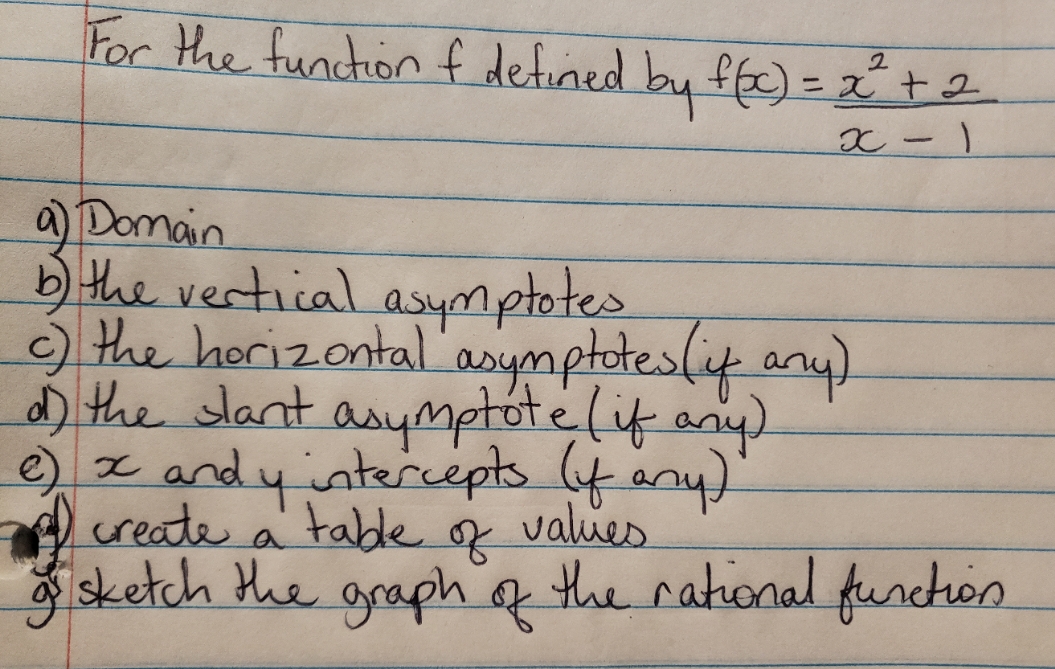 For the function f defined by f(x) = x² + 2
x - 1
a) Domain
b) the vertical asymptotes
c) the horizontal asymptotes (if any)
d) the slant asymptote (if any)
e) x and y intercepts (if any)
f) create a table of values
g) sketch the graph of the rational function